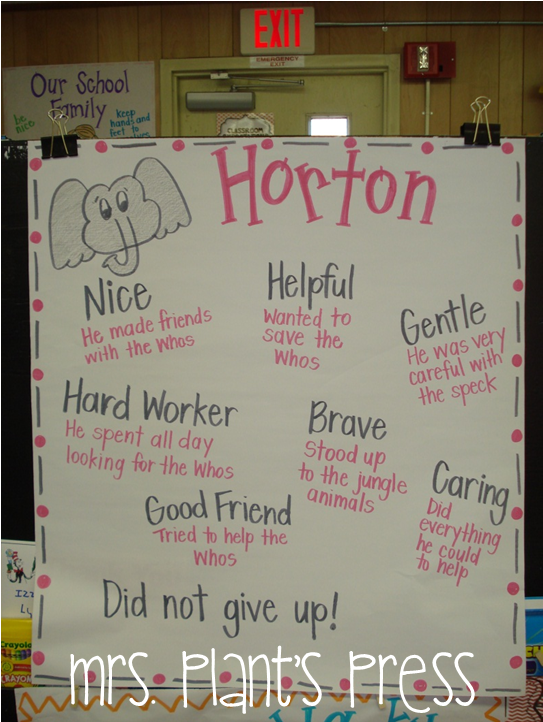 EXIT
EMERGENCY
EXIT
Our School
Family
be
nice
keep
hands and
feet to
CLASSROOM
Horton
Nice
He made friends
with the Whos
Helpful
Wanted to
save the
Whos
Gentle
He was very
careful with
the speck
Hard Worker
He spent all day
looking for the Whos
Brave
Stood up
to the jungle
animals
Caring
Did
everything
he could
to help
Good Friend
Tried to help the
Whos
Did not give up!
Crayola
mrs. Plant's Press